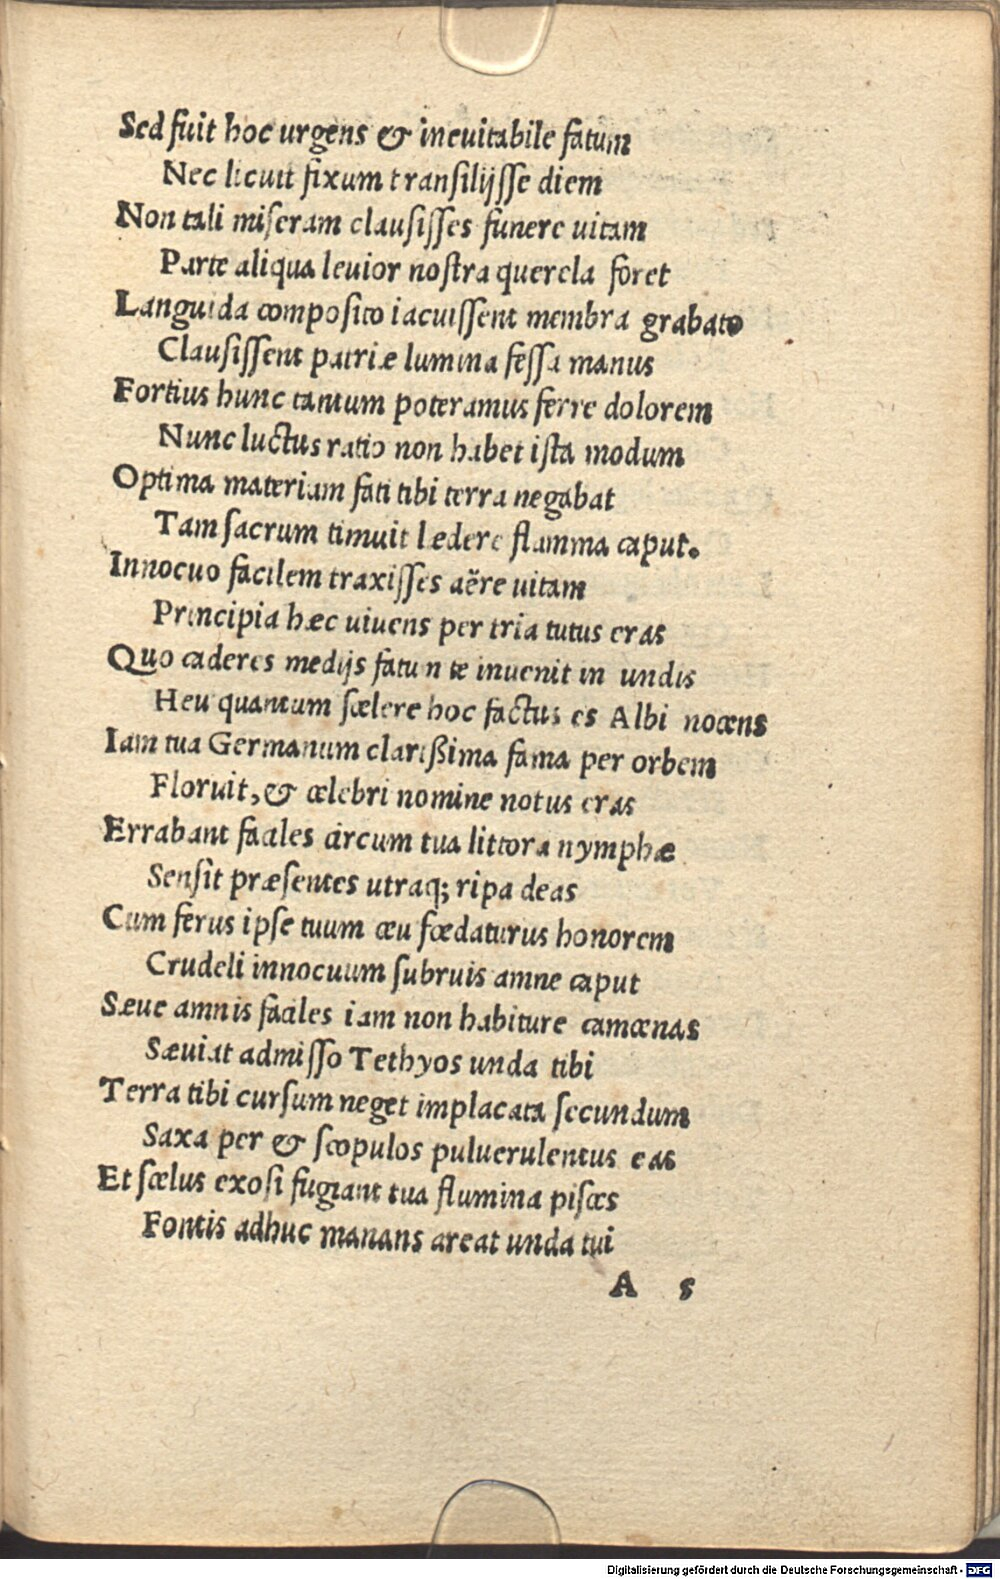 Sed fuit hoc urgens & ineuitabile fatum
Nec licuit fixum transilijsse diem
Non tali miseram clausisses funere uitam
Parte aliqua leuior nostra querela foret
Languida composito iacuissent membra grabato
Clausissent patriæ lumina fessa manus
Fortius hunc tantum poteramus ferre dolorem
Nunc luctus ratio non habet ista modum
Optima materiam fati tibi terra negabat
Tam sacrum timuit ledere flamma caput.
Innocuo facilem traxisses aëre uitam
Principia hæc uiuens per tria tutus eras
Quo caderes medijs fatum te inuenit in undis
Heu quantum scelere hoc factus es Albi nocens
Iam tua Germanum clarißima fama per orbem
Floruit, & celebri nomine notus eras
Errabant faciles circum tua littora nymphæ
Sensit præsentes utraq; ripa deas
Cum ferus ipse tuum ceu fœdaturus honorem
Crudeli innocuum subruis amne caput
Sæue amnis faciles iam non habiture camœnas
Sæuiat admisso Tethyos unda tibi
Terra tibi cursum neget implacata secundum
Saxa per & scopulos puluerulentus eas
Et scelus exosi fugiant tua flumina pisces
Fontis adhuc manans areat unda tui
A 5
Digitalisierung gefördert durch die Deutsche Forschungsgemeinschaft - DFG